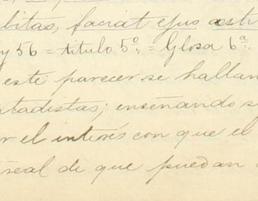 bilitas, faciat ejus æsti
y 56 = título 5º = Glosa 6ª
este parecer se hallan
tadistas; enseñando s
r el interés con que el
real de que puedan